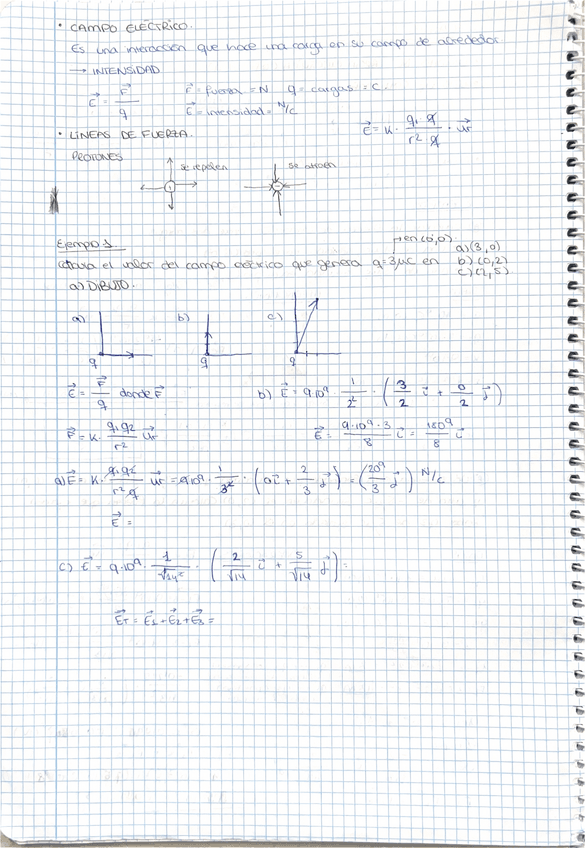 • CAMPO ELÉCTRICO.
Es una interacción que hace una carga en su campo de alrededor
→ INTENSIDAD
E⃗ = F⃗ / q   F⃗ = fuerza = N   q = cargas = C.
E⃗ = intensidad = N/C
• LÍNEAS DE FUERZA.   E⃗ = K · (q₁ · q) / (r² q) · u⃗r
PROTONES
se repelen   se atraen
Ejemplo 1   → en (0,0)
el valor del campo eléctrico que genera q = 3μC en   a) (3,0)   b) (0,2)   c) (2,5)
a) DIBUJO.
a)   b)   c)
q   q   q
E⃗ = F⃗ / q donde F⃗
b) E⃗ = 9·10⁹ · 1/2² · (3/2 i⃗ + 0/2 j⃗)
F⃗ = K · q₁q₂ / r² u⃗r
E⃗ = 9·10⁹·3 / 8 i⃗ = 180⁹ / 8 i⃗
a) E⃗ = K · q₁q₂ / r²q u⃗r = 9·10⁹ · 1/3² · (0i⃗ + 2/3 j⃗) = (20⁹/3 j⃗) N/C
E⃗ =
c) E⃗ = 9·10⁹ · 1/√14² · (2/√14 i⃗ + 5/√14 j⃗) =
E⃗T = E⃗1 + E⃗2 + E⃗3 =